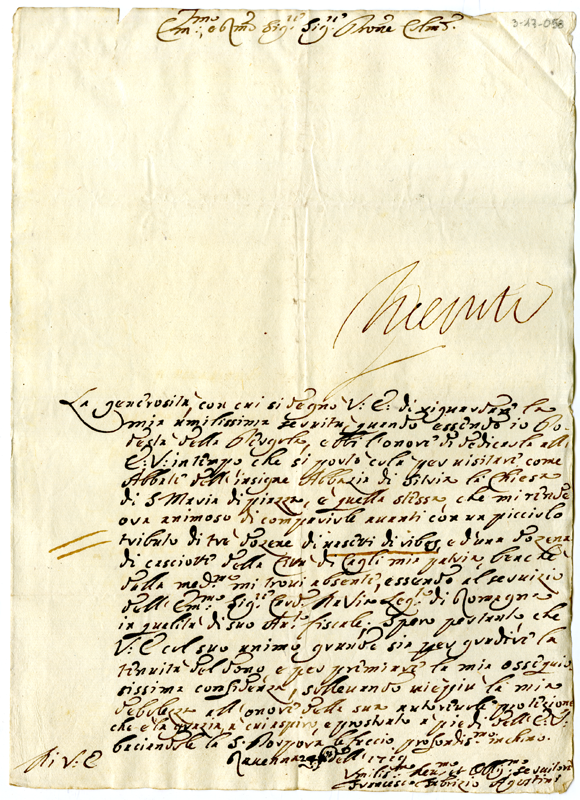 3-17-058
Em.mo e R.mo Sig.re Sig.re Prone Colmo.
Ricevuti
La generosità, con cui si degnò V: E: di riguardare la
mia umilissima servitù, quando essendo io Po-
destà della Pergola, ebbi l'onore di dedicarla all'
E: V: in tempo che si portò colà per visitare come
Abbate dell'insigne Abbazia di Silvia la Chiesa
di S. Maria di piazza, è quella stessa, che mi rende
ora animoso di comparirle avanti con un picciolo
tributo di tre dozene di raschi di vibes, e d'una dozena
di casciotte della Città di Cagli mia patria, benche
dalla med.ma mi trovi absente, essendo al servizio
dell'Em.mo Sig.re Card. Leg.to di Romagna
in qualità di suo Aud.re fiscale. Spero pertanto, che
V: E: col suo animo grande sia per gradire la
tenuità del dono, e per premiare la mia ossequio-
sissima confidenza, sollevando vieppiù la mia
debolezza all'onore della sua autorevole protezione
che è la grazia, a cui aspiro, e prostrato a' piedi dell'E: V:
baciandole la S. Porpora le faccio profondis.mo inchino.
Ravenna 1719
Di V: E
Umilis.mo et Obblig.mo Servitore
Francesco Fabrizio Agostini